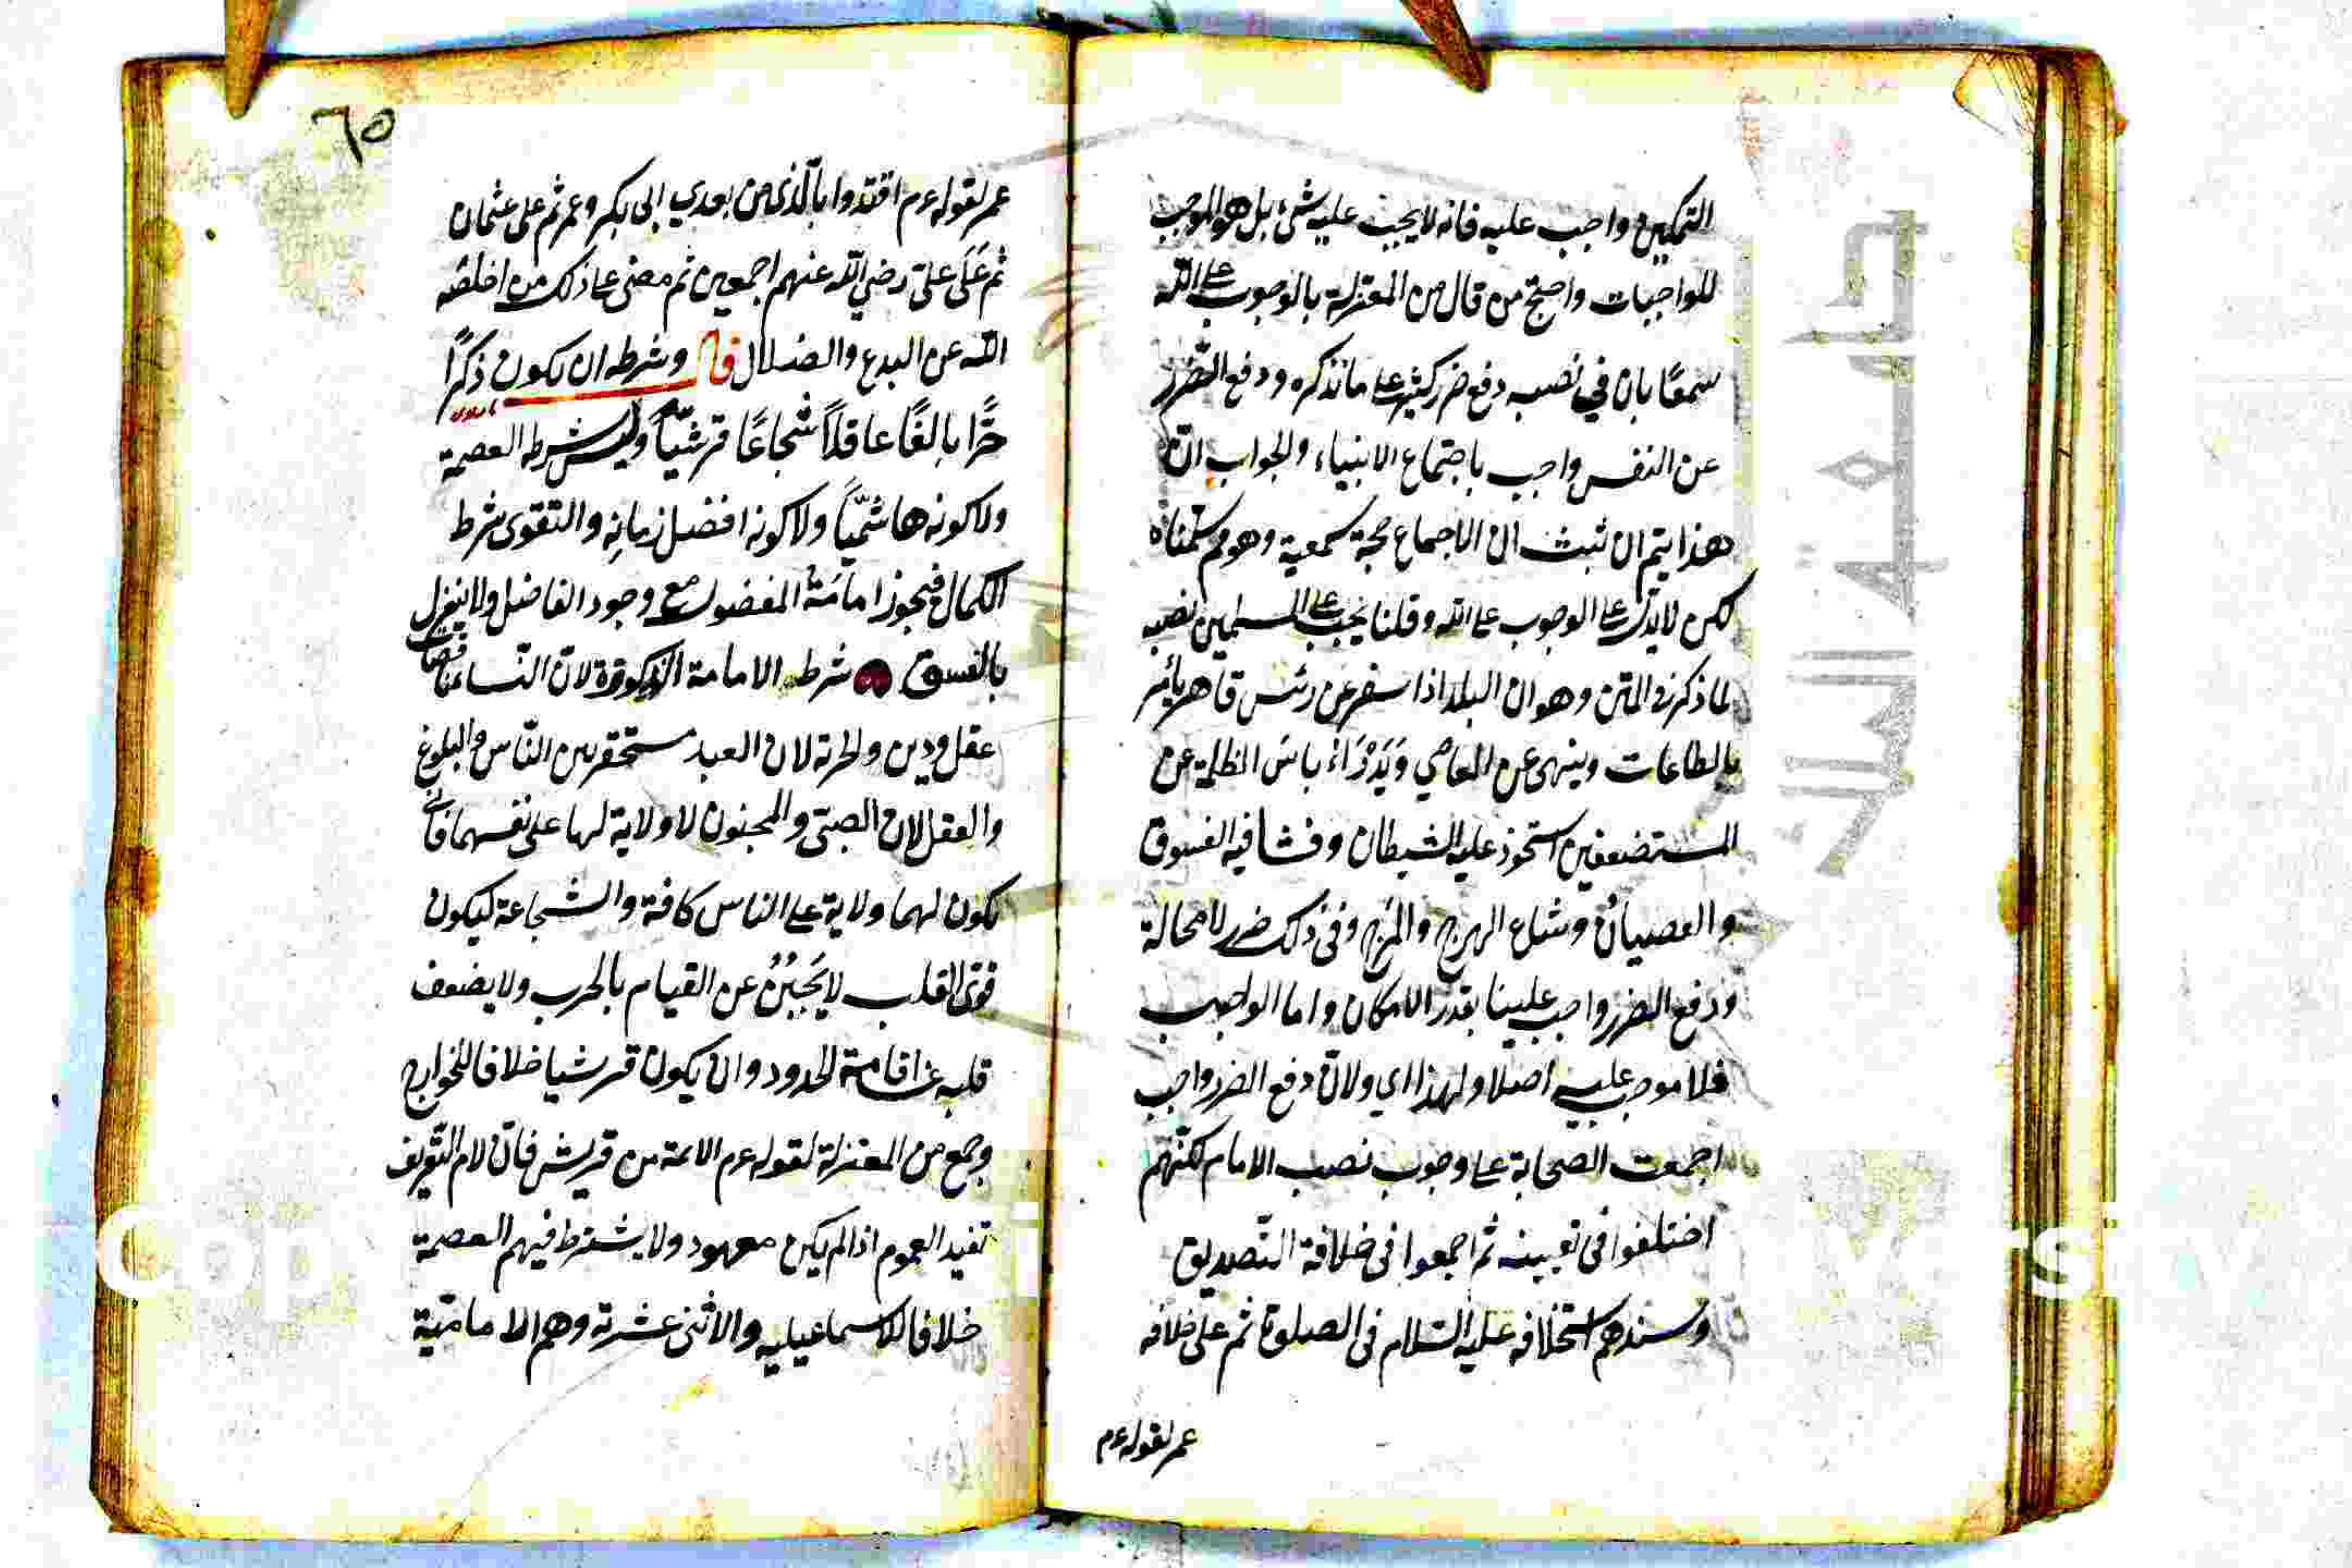 التمكين واجب عليه فانه لا يجب عليه شئ بل هو الموجب
للواجبات واحتج من قال من المعتزلة بالوجوب على الله
سمعًا بان في نصبه دفع ضرر كثير على ما نذكره ودفع الضرر
عن النفس واجب باجتماع الانبياء والجواب انّ
هذا يتم ان ثبت ان الاجماع حجة سمعية وهو م سلمناه
لكن لا يدل على الوجوب على الله وقلنا يجب على المسلمين نصبه
لما ذكر في المتن وهو ان البلد اذا سفر عن رئس قاهر يأمر
بالطاعات وينهى عن المعاصي وَيَدْرَاءُ باس الظلمة عن
المستضعفين استحوذ عليه الشيطان وفشا فيه الفسوق
والعصيان وشاع الهرج والمرج وفى ذلك ضرر لا محالة
ودفع الضرر واجب علينا بقدر الامكان واما الواجب
فلا موجب عليه اصلا ولهذا اي ولانّ دفع الضرر واجب
اجمعت الصحابة على وجوب نصب الامام لكنّهم
اختلفوا فى تعيينه ثم اجمعوا فى خلافة الصّديق
وسندهم استخلافه عليه السّلام فى الصلوة ثم على خلافه
عمر لقوله عم
٦٥
عمر لقوله عم اقتدوا بالّذى من بعدي ابى بكر وعمر ثم على عثمان
ثم عَلَى علىّ رضي الله عنهم اجمعين ثم مضى على ذلك من اخلصه
الله عن البدع والضلال قال وشرطه ان يكون ذكرًا
حرًّا بالغًا عاقلاً شجاعًا قرشيّاً وليس شرطه العصمة
ولا كونه هاشميّاً ولا كونه افضل زمانِه والتقوى شرط
الكمال فيجوز امامَةُ المفضول مع وجود الفاضل ولا ينعزل
بالفسق شرط الامامة الذكورة لانّ النّسا ناقصات
عقل ودين والحرية لان العبد مستحقر بين النّاس والبلوغ
والعقل لان الصبىّ والمجنون لا ولاية لهما على نفسهما فانى
يكون لهما ولاية على الناس كافة والشجاعة ليكون
قوى القلب لا يَجْبُنُ عن القيام بالحرب ولا يضعف
قلبه عن اقامة الحدود وان يكون قرشيا خلافا للخوارج
وجمع من المعتزلة لقوله عم الائمة من قريش فانّ لام التّعريف
تفيد العموم اذا لم يكن معهود ولا يشترط فيهم العصمة
خلافا للاسماعيليه والاثنى عشرية وهم الامامّية